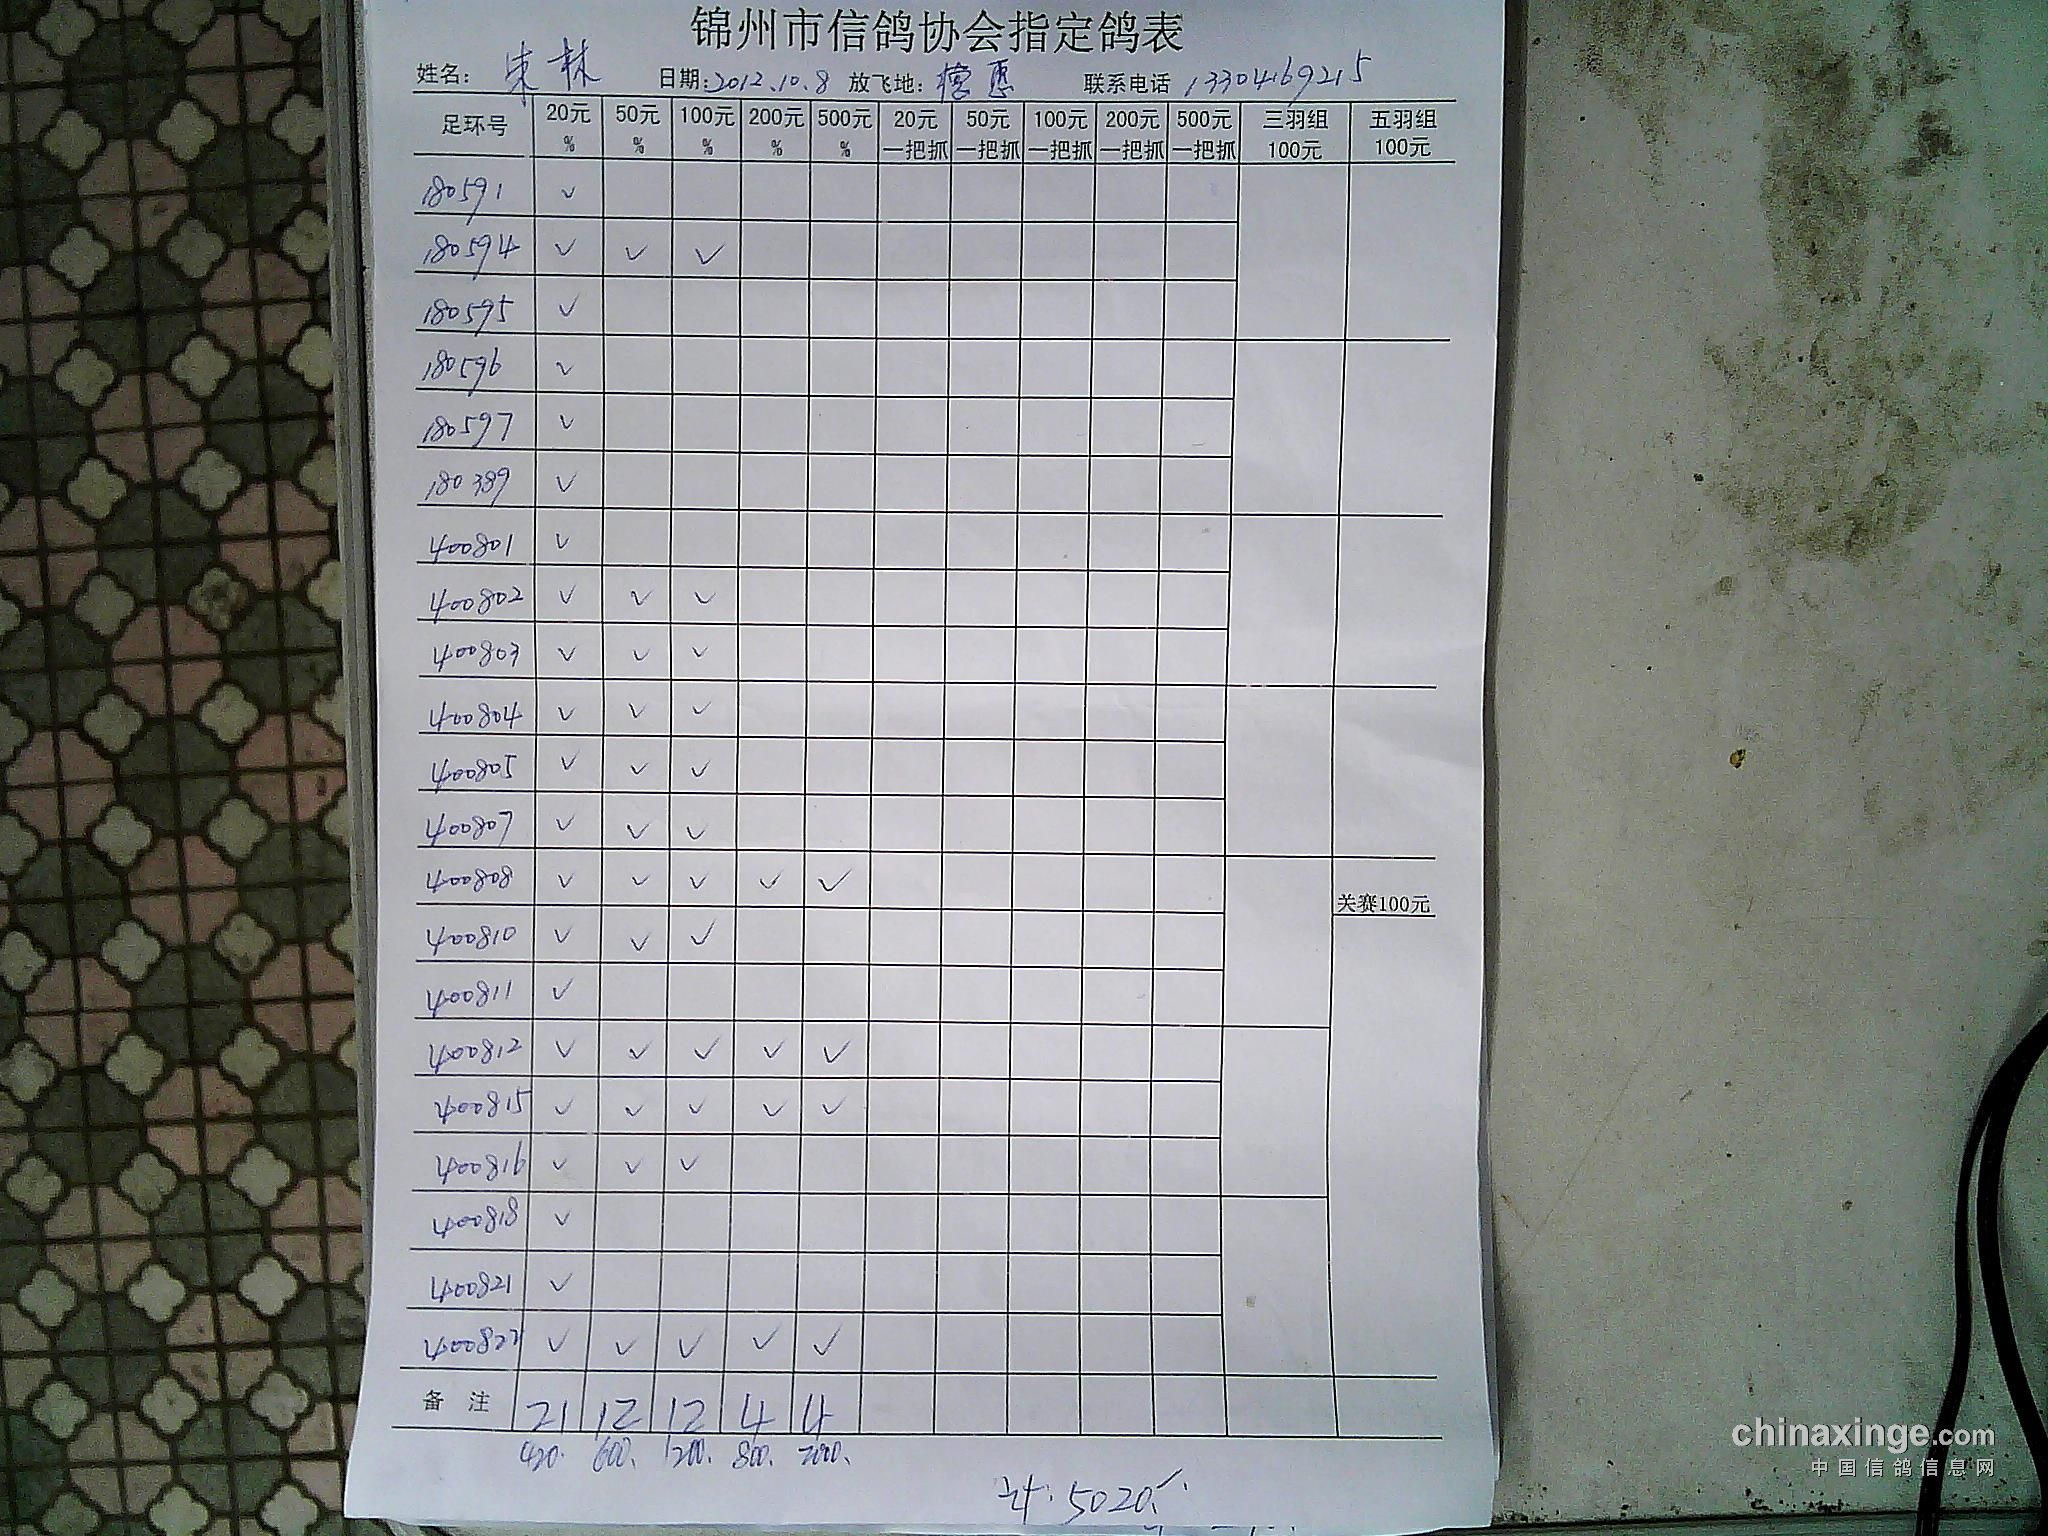 锦州市信鸽协会指定鸽表
姓名: 朱林 日期:2012.10.8 放飞地: 联系电话 13304169215
足环号 20元% 50元% 100元% 200元% 500元% 20元一把抓 50元一把抓 100元一把抓 200元一把抓 500元一把抓 三羽组100元 五羽组100元
180591 ✓
180594 ✓ ✓ ✓
180595 ✓
180596 ✓
180597 ✓
180389 ✓
400801 ✓
400802 ✓ ✓ ✓
400803 ✓ ✓ ✓
400804 ✓ ✓ ✓
400805 ✓ ✓ ✓
400807 ✓ ✓ ✓
400808 ✓ ✓ ✓ ✓ ✓
关赛100元
400810 ✓ ✓ ✓
400811 ✓
400812 ✓ ✓ ✓ ✓ ✓
400815 ✓ ✓ ✓ ✓ ✓
400816 ✓ ✓ ✓
400818 ✓
400821 ✓
400822 ✓ ✓ ✓ ✓ ✓
备注 21 12 12 4 4
420. 600. 1200. 800. 2000.
计. 5020.
chinaxinge.com
中国信鸽信息网